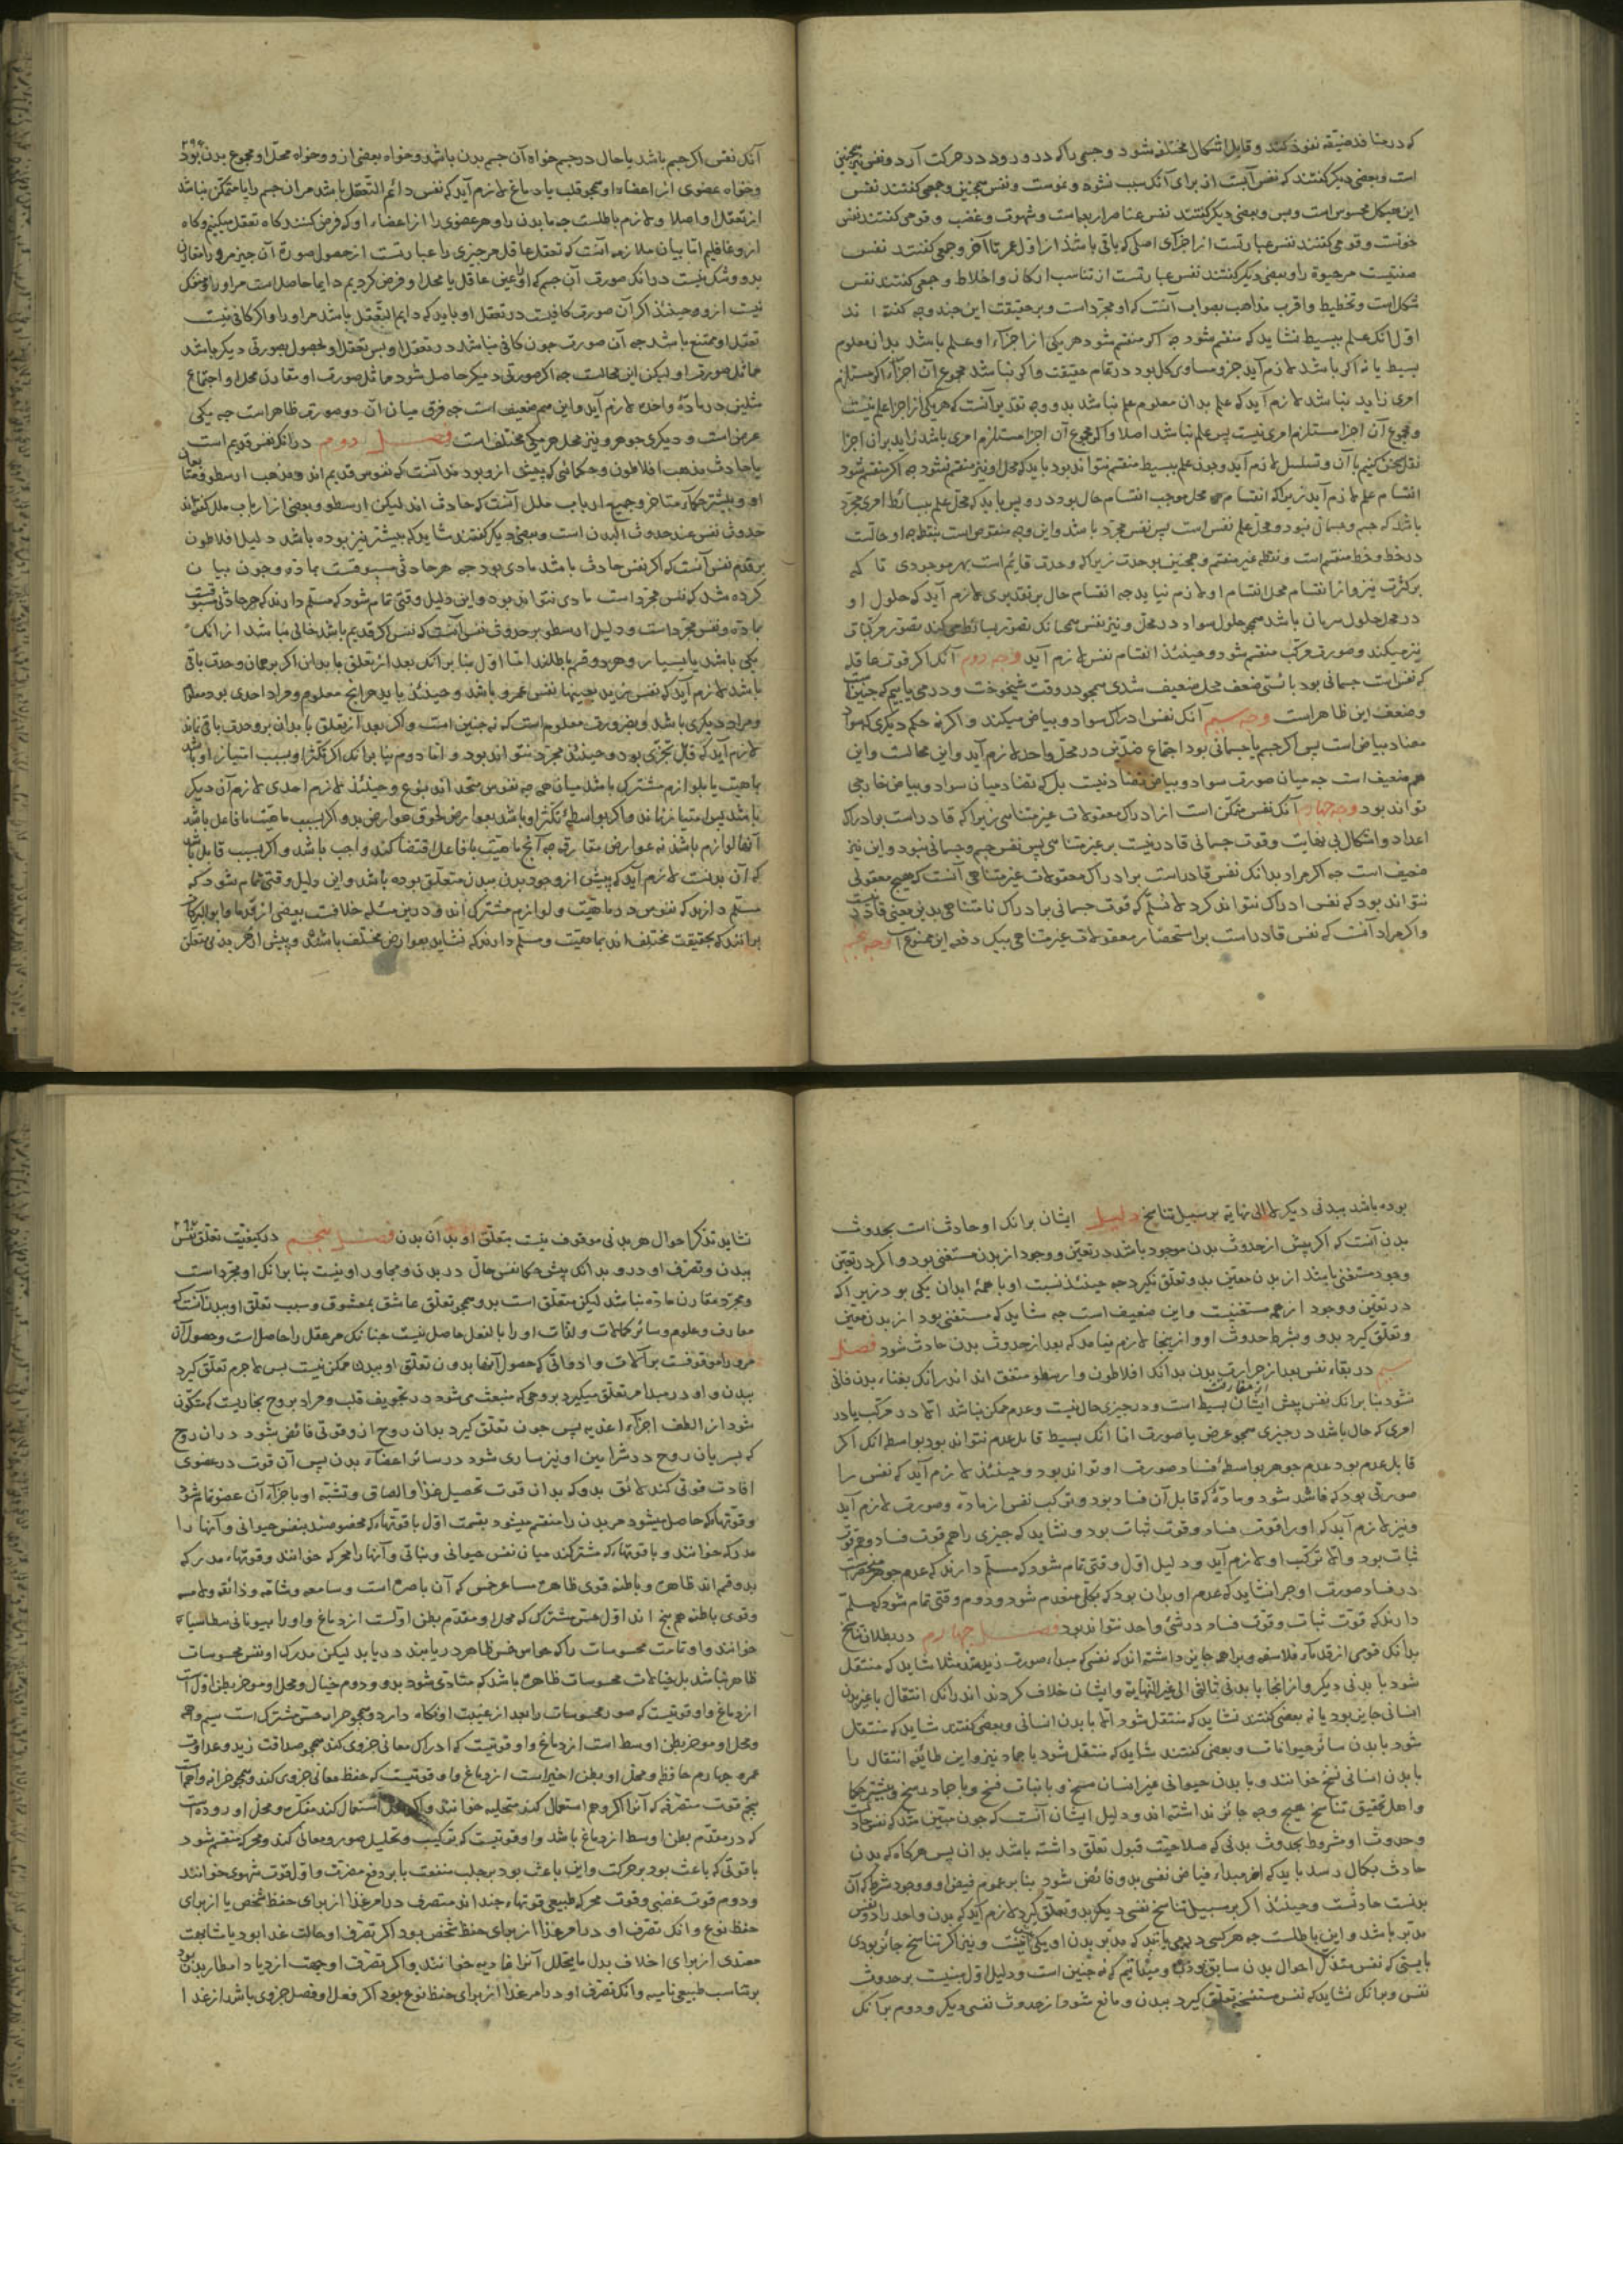 که در منافذ ضیقه نفوذ کند و قابل اشکال مختلفه شود و جسمی را که درو رود در حرکت آرد و نفس نیز همچنین
است و بعضی دیگر گفتند که نفس آبست از برای آنک سبب نشو و نموست و نفس همچنین و جمعی گفتند نفس
این هیکل محسوس است و بس و بعضی دیگر گفتند نفس عناصر اربعه است و شهوت و غضب و قومی گفتند نفس
خونست و قومی گفتند نفس عبارتست از اجزای اصلی که باقی باشد از اول عمر تا آخر و جمعی گفتند نفس
صفتیست مر حیوة را و بعضی دیگر گفتند نفس عبارتست از تناسب ارکان و اخلاط و جمعی گفتند نفس
شکل است و تخطیط و اقرب مذاهب بصواب آنست که او مجرد است و بر حقیقت این چند وجه گفته اند
اول آنک علم ببسیط نشاید که منقسم شود چه اگر منقسم شود هر یکی از اجزاء او علم باشد بدان معلوم
بسیط یا نه اگر باشد لازم آید جزو مساوی کل بود در تمام حقیقت و اگر نباشد مجموع آن اجزاء اگر مستلزم
امری زاید نباشد لازم آید که علم بدان معلوم علم نباشد بدو وجه تقدیر آنست که هر یکی از اجزا علم نیست
و مجموع آن اجزا مستلزم امری نیست پس علم نباشد اصلا و اگر مجموع آن اجزا مستلزم امری باشد زاید بران اجزا
نقل سخن کنیم با آن و تسلسل لازم آید و چون علم ببسیط منقسم نتواند بود باید که محل او نیز منقسم نشود چه اگر منقسم شود
انقسام علم لازم آید زیرا که انقسام محل موجب انقسام حال بود درو پس باید که محل علم ببسائط امری مجرد
باشد که جسم و جسمانی نبود و محل علم نفس است پس نفس مجرد باشد و این وجه منقوض است بنقطه چه او حالست
در خط و خط منقسم است و نقطه غیر منقسم و همچنین بوحدت زیرا که وحدت قائم است بهر موجودی تا که
بر کثرت نیز و از انقسام محل انقسام او لازم نیاید چه انقسام حال بر تقدیری لازم آید که حلول او
در محل حلول سریان باشد همچو حلول سواد در محل و نیز نفس همچنانک تصور بسائط میکند تصور مرکبات
نیز میکند و صورت مرکب منقسم شود و حینئذ انقسام نفس لازم آید وجه دوم آنک اگر قوت عاقله
که نفس است جسمانی بود بائستی ضعف محل ضعیف شدی همچو در وقت شیخوخت و در می یابیم که چنین نیست
و ضعف این ظاهر است وجه سیم آنک نفس ادراک سواد و بیاض میکند و اگر نه حکم دیگری که سواد
مضاد بیاض است پس اگر جسم یا جسمانی بود اجتماع ضدین در محل واحد لازم آید و این محالست و این
هم ضعیف است چه میان صورت سواد و بیاض تضاد نیست بل که تضاد میان سواد و بیاض خارجی
تواند بود وجه چهارم آنک نفس متمکن است از ادراک معقولات غیر متناهی زیرا که قادر است بر ادراک
اعداد و اشکال بی نهایت و قوت جسمانی قادر نیست بر غیر متناهی پس نفس جسم و جسمانی نبود و این نیز
ضعیف است چه اگر مراد بدانک نفس قادر است بر ادراک معقولات غیر متناهی آنست که هیچ معقولی
نتواند بود که نفس ادراک نتواند کرد لا نسلم که قوت جسمانی بر ادراک نامتناهی بدین معنی قادر نیست
و اگر مراد آنست که نفس قادر است بر استحضار معقولات غیر متناهی بیک دفعه این ممنوع است وجه پنجم
آنک نفس اگر جسم باشد یا حال در جسم خواه آن جسم بدن باشد و خواه بعضی ازو و خواه محل او مجموع بدن بود
و خواه عضوی از اعضاء او همچو قلب یا دماغ لازم آید که نفس دائم التعقل باشد مر ان جسم را یا متمکن نباشد
از تعقل او اصلا و لازم باطلست چه ما بدن را و هر عضوی را از اعضاء او که فرض کنند گاه تعقل میکنیم و گاه
ازو غافلیم اما بیان ملازمه آنست که تعقل عاقل مر چیزی را عبارتست از حصول صورة آن چیز مرو را مقارن
بدو و شک نیست در انک صورت آن جسم که او عین عاقل یا محل او فرض کردیم دایما حاصلست مر او را و منفک
نیست ازو و حینئذ اگر آن صورت کافیست در تعقل او باید که دایم التعقل باشد مر او را و اگر کافی نیست
تعقل او ممتنع باشد چه آن صورت چون کافی نباشد در تعقل او پس تعقل او بحصول صورتی دیگر باشد
مماثل صورت او لیکن این محالست چه اگر صورتی دیگر حاصل شود مماثل صورت او مقارن محل او اجتماع
مثلین در مادۀ واحده لازم آید و این هم ضعیف است چه فرق میان آن دو صورت ظاهر است چه یکی
عرض است و دیگری جوهر و نیز محل هر یکی مختلف است فصل دوم در انک نفس قدیم است
یا حادث مذهب افلاطون و حکمائی که پیش ازو بودند آنست که نفوس قدیم اند و مذهب ارسطو و متابعان
او و بیشتر حکماء متاخر و جمیع ارباب ملل آنست که حادث اند لیکن ارسطو و بعضی از ارباب ملل گفته اند
حدوث نفس عند حدوث البدن است و بعضی دیگر گفتند شاید که بیشتر نیز بوده باشد دلیل افلاطون
بر قدم نفس آنست که اگر نفس حادث باشد مادی بود چه هر حادثی مسبوقست بمادة و چون بیان
کرده شد که نفس مجرد است مادی نتواند بود و این دلیل وقتی تمام شود که مسلم دارند که هر حادثی مسبوقست
بمادة و نفس مجرد است و دلیل ارسطو بر حدوث نفس آنست که نفس اگر قدیم باشد خالی نباشد از انک
یکی باشد یا بسیار و هر دو قسم باطلند اما اول بنا بر انک بعد از تعلق بابدان اگر بر همان وحدت باقی
باشد لازم آید که نفس زید بعینها نفس عمرو باشد و حینئذ باید هرانچ معلوم و مراد احدی بود معلوم
و مراد دیگری باشد و بضرورت معلوم است که نه چنین است و اگر بعد از تعلق بابدان بر وحدت باقی نماند
لازم آید که قابل تجزی بود و حینئذ مجرد نتواند بود و اما دوم بنا برانک اگر تکثر او بسبب امتیاز او باشد
بماهیت یا بلوازم مشترک باشد میان همه چه نفوس متحد اند بنوع و حینئذ لازم احدی لازم آن دیگر
باشد پس امتیاز نماند و اگر بواسطۀ تکثر او باشد بعوارض لحوق عوارض بدو و اگر بسبب ماهیت یا فاعل باشد
آنها لوازم باشند نه عوارض مفارق چه آنچ ماهیت یا فاعل اقتضا کند واجب باشد و اگر بسبب قابل باشد
که آن بدنست لازم آید که پیش از وجود بدن ببدن متعلق بوده باشد و این دلیل وقتی تمام شود که
مسلم دارند که نفوس در ماهیت و لوازم مشترک اند و درین مسله خلافست بعضی از قدما و ابو البرکات
برانند که بحقیقت مختلف اند بماهیت و مسلم دارند که نشاید بعوارض مختلف باشند و پیش از هر بدنی متعلق
بوده باشد ببدنی دیگر لا الی نهایة بر سبیل تناسخ دلیل ایشان برانک او حادث است بحدوث
بدن آنست که اگر پیش از حدوث بدن موجود باشد در تعین و وجود از بدن مستغنی بود و اگر در تعین
وجود مستغنی باشد از بدن معین بدو تعلق نگیرد چه حینئذ نسبت او با همۀ ابدان یکی بود زیرا که
در تعین و وجود از همه مستغنیست و این ضعیف است چه شاید که مستغنی بود از بدن معین
و تعلق گیرد بدو و بشرط حدوث او و از ینجا لازم نیامد که بعد از حدوث بدن حادث شود فصل
سیم در بقاء نفس بعد از خرابی بدن بدانک افلاطون و ارسطو متفق اند اندرانک بفناء بدن فانی
نشود بنا برانک نفس پیش ایشان بسیط است و در چیزی حال نیست و عدم ممکن نباشد الا در مرکب یا در
امری که حال باشد در چیزی همچو عرض یا صورت اما آنک بسیط قابل عدم نتواند بود بواسطه انک اگر
قابل عدم بود عدم جوهر بواسطۀ فساد صورت او تواند بود و حینئذ لازم آید که نفس را
صورتی بود که فاسد شود و مادۀ که قابل آن فساد بود و ترکب نفس از مادة و صورت لازم آید
و نیز لازم آید که او را قوت فساد و قوت ثبات بود و نشاید که چیزی را هم قوت فساد و هم قوت
ثبات بود والا ترکب او لازم آید و دلیل اول وقتی تمام شود که مسلم دارند که عدم جوهر منحصر است
در فساد صورت او چرا نشاید که عدم او بدان بود که بکلی منعدم شود و دوم وقتی تمام شود که مسلم
دارند که قوت ثبات و قوت فساد در شیء واحد نتواند بود فصل چهارم در بطلان تناسخ
بدانک قومی از قدماء فلاسفه و براهمه جایز داشته اند که نفسی که مبداء صورت زیدست مثلا شاید که منتقل
شود با بدنی دیگر و از انجا با بدنی ثالثی الی غیر النهایة و ایشان خلاف کردند اندرانک انتقال با غیر بدن
انسانی جایز بود یا نه بعضی گفتند نشاید که منتقل شود الا با بدن انسانی و بعضی گفتند شاید که منتقل
شود با بدن سائر حیوانات و بعضی گفتند شاید که منتقل شود با جماد نیز و این طایفه انتقال را
با بدن انسانی نسخ خوانند و با بدن حیوانی غیر انسان مسخ و با نبات فسخ و با جماد رسخ و بیشتر حکما
و اهل تحقیق تناسخ هیچ وجه جائز نداشته اند و دلیل ایشان آنست که چون مبین شد که نفس حادثست
و حدوث او مشروط بحدوث بدنی که صلاحیت قبول تعلق داشته باشد بدان پس هرگاه که بدن
حادث بکمال رسد باید که از مبداء فیاض نفسی بدو فائض شود بنا بر عموم فیض او و وجود شرط که آن
بدنست حادثست و حینئذ اگر بر سبیل تناسخ نفسی دیگر بدو تعلق گیرد لازم آید که بدن واحد را دو نفس
مدبر باشد و این باطلست چه هر کسی در می یابند که مدبر بدن او یکی نیست و نیز اگر تناسخ جائز بودی
بایستی که نفس متذکر احوال بدن سابق بودی و میدانیم که نه چنین است و دلیل اول مبنیست بر حدوث
نفس و برانک نشاید که نفس مستنسخه تعلق گیرد ببدن و مانع شود از حدوث نفسی دیگر و دوم برانک
نشاید تذکر احوال هر بدنی موقوف نیست بتعلق او بدان بدن فصل پنجم در کیفیت تعلق نفس
ببدن و تصرف او درو بدانک پیش حکما نفس حال در بدن و مجاور او نیست بنا برانک او مجرد است
و مجرد مقارن مادة نباشد لیکن متعلق است بدو همچو تعلق عاشق بمعشوق و سبب تعلق او ببدن آنست که
معارف و علوم و سائر کمالات و لذات او را بالفعل حاصل نیست چنانک مر عقل را حاصلست و حصول آن
مرو را موقوفست بر آلات و ادواتی که حصول آنها بدون تعلق او ببدن ممکن نیست پس لاجرم تعلق گیرد
ببدن و او در مبداء مر تعلق میگیرد بروحی که منبعث می شود در تجویف قلب و مراد بروح بخاریست که متکون
شود از الطف اجزاء اغذیه پس چون تعلق گیرد بدان روح ازو قوتی فائض شود در ان روح
که بسریان روح در شرایین او نیز ساری شود در سائر اعضاء بدن پس آن قوت در هر عضوی
افادت قوتی کند لائق بدو که بدان قوت تحصیل غذا و الصاق و تشبه او باجزاء آن عضو تمام شود
و قوتهائی که حاصل میشود مر بدن را منقسم میشود بقسمت اول با قوتهائی که مخصوصند بنفس حیوانی و آنها را
مدرکه خوانند و با قوتهائی که مشترکند میان نفس حیوانی و نباتی و آنها را محرکه خوانند و قوتهاء مدرکه
بدو قسم اند ظاهره و باطنه قوی ظاهره مشاعر خمس که آن باصره است و سامعه و شامه و ذائقه و لامسه
و قوی باطنه هم پنج اند اول حس مشترک که محل او مقدم بطن اولست از دماغ و او را بیونانی بنطاسیا
خوانند و او تمامت محسوسات را که حواس خمس ظاهر دریابند دریابد لیکن مدرک او نفس محسوسات
ظاهر نباشد بل خیالات محسوسات ظاهره باشد که متادی شود بدو و دوم خیال و محل او موخر بطن اول است
از دماغ و او قوتیست که صور محسوسات را بعد از غیبت او نگاه دارد و همچو خزانۀ حس مشترک است سیم واهمه
و محل او موخر بطن اوسط است از دماغ و او قوتیست که ادراک معانی جزوی کند همچو صداقت زید و عداوت
عمرو چهارم حافظه و محل او بطن اخیر است از دماغ و او قوتیست که حفظ معانی جزوی کند و همچو خزانۀ واهمه است
پنجم قوت متصرفه که آنرا اگر وهم استعمال کند متخیله خوانند و اگر عقل استعمال کند مفکره و محل او دوده است
که در مقدم بطن اوسط از دماغ باشد و او قوتیست که بترکیب و تحلیل صور و معانی کند و محرکه منقسم شود
با قوتی که باعث بود بر حرکت و این باعث بود بر جلب منفعت یا بر دفع مضرت و اول قوت شهوی خوانند
و دوم قوت غضبی و قوت محرکه طبیعی قوتهاء چند اند متصرف در امر غذا از برای حفظ شخص یا از برای
حفظ نوع و انک تصرف او در امر غذا از برای حفظ شخص بود اگر تصرف او حالت غذا بود با مشابهت
مغتذی از برای اخلاف بدل ما یتحلل آنرا غاذیه خوانند و اگر تصرف او جهت ازدیاد اقطار بدن بود
بر تناسب طبیعی نامیه و انک تصرف او در امر غذا از برای حفظ نوع بود اگر فعل او فصل جزوی باشد از غذا